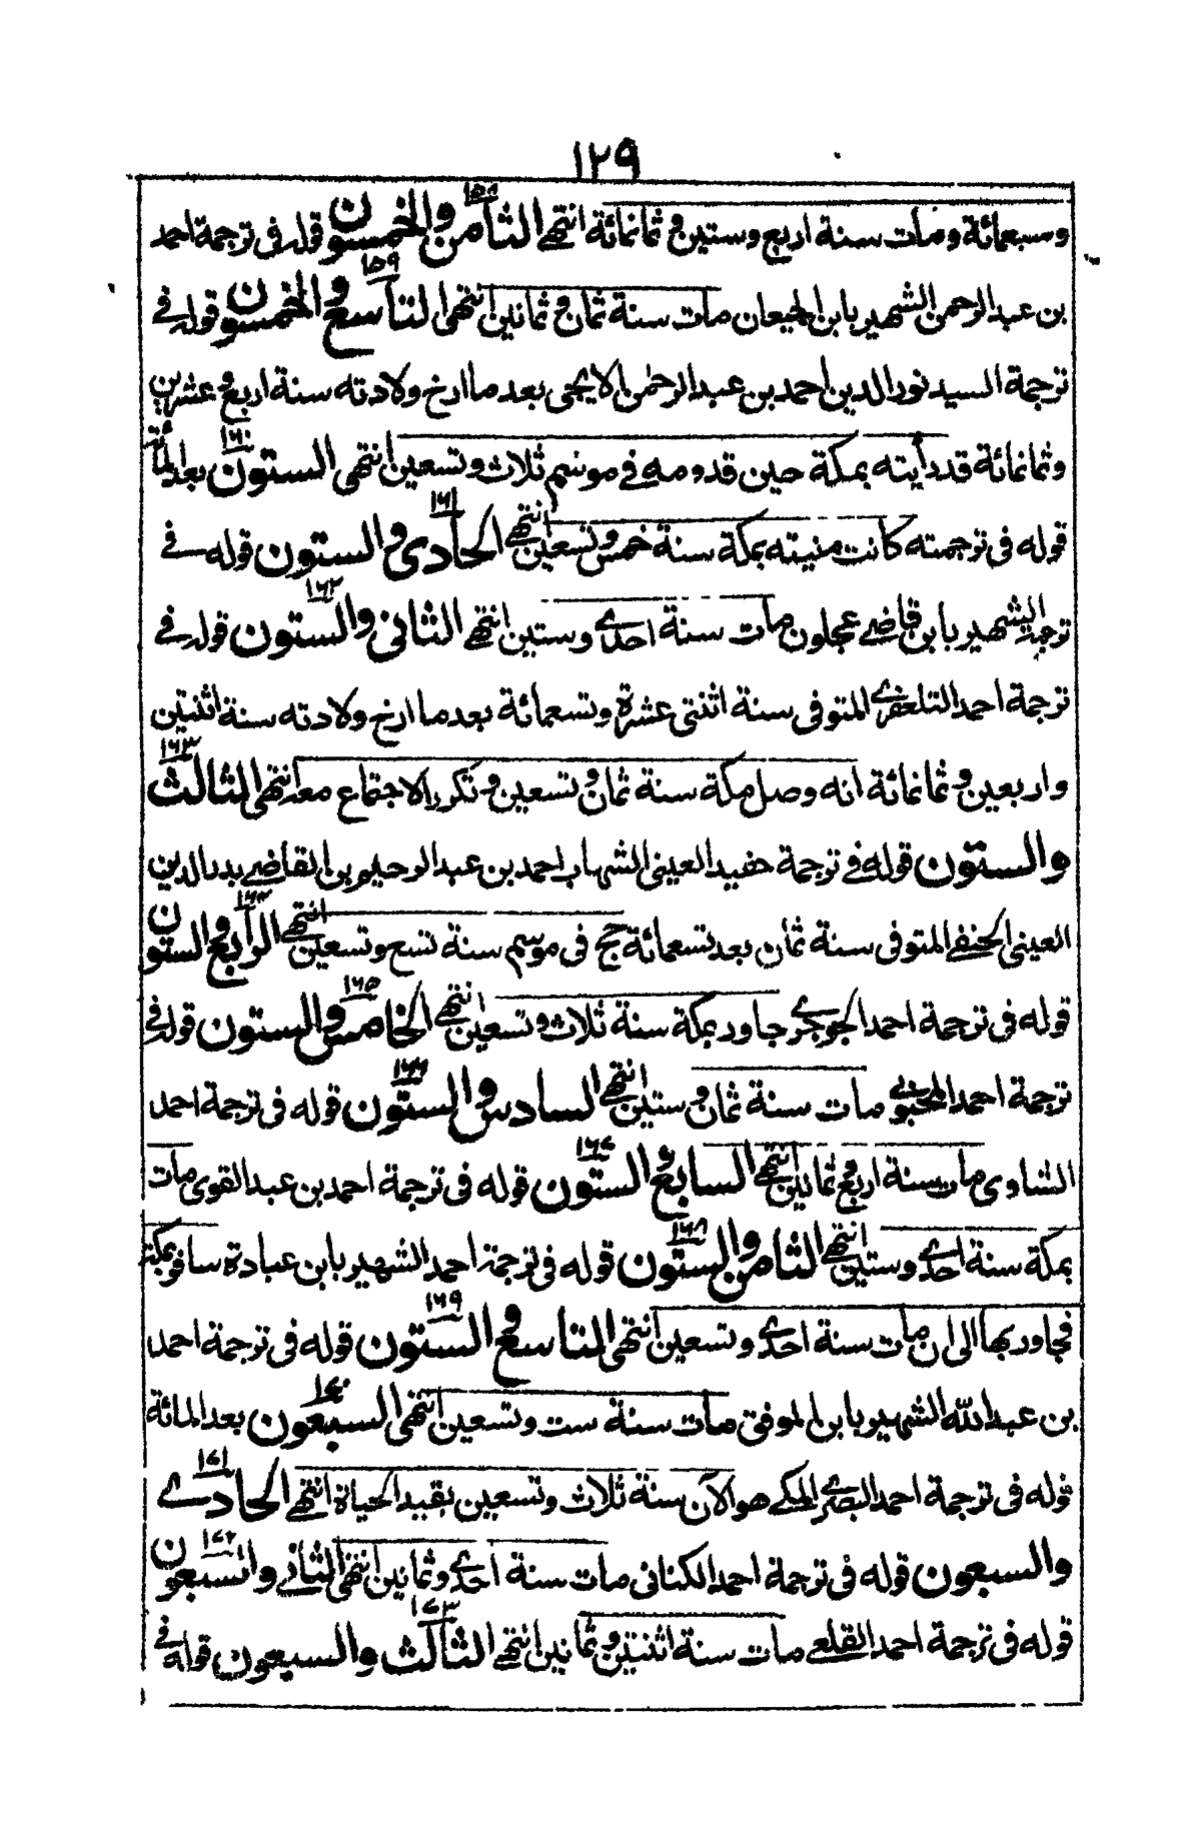 ١٢٩
وسبعمائة ومات سنة اربع وستين وثمانمائة انتهى الثامن والخمسون ١٥٨ قوله فى ترجمة احمد
بن عبدالرحمن الشهير بابن الجيعان مات سنة ثمان وثمانين انتهى التاسع والخمسون ١٥٩ قوله فى
ترجمة السيد نورالدين احمد بن عبدالرحمٰن الايجى بعد ما ارخ ولادته سنة اربع وعشرين
وثمانمائة قد رأيته بمكة حين قدومه فى موسم ثلاث وتسعين انتهى الستون ١٦٠ بعد المائة
قوله فى ترجمته كانت منيته بمكة سنة خمس وتسعين انتهى الحادى والستون ١٦١ قوله فى
ترجمة الشهير بابن قاضى عجلون مات سنة احدى وستين انتهى الثانى والستون ١٦٢ قوله فى
ترجمة احمد التلعفرى المتوفى سنة اثنتى عشرة وتسعمائة بعد ما ارخ ولادته سنة اثنتين
واربعين وثمانمائة انه وصل مكة سنة ثمان وتسعين وتكرر الاجتماع معه انتهى الثالث ١٦٣
والستون قوله فى ترجمة حفيد العينى الشهاب احمد بن عبدالرحيم بن القاضى بدرالدين
العينى الحنفى المتوفى سنة ثمان بعد تسعمائة حج فى موسم سنة تسع وتسعين انتهى الرابع والستون ١٦٤
قوله فى ترجمة احمد الجوجرى جاور بمكة سنة ثلاث وتسعين انتهى الخامس والستون ١٦٥ قوله فى
ترجمة احمد مات سنة ثمان وستين انتهى السادس والستون ١٦٦ قوله فى ترجمة احمد
الشاوى مات سنة اربع وثمانين انتهى السابع والستون ١٦٧ قوله فى ترجمة احمد بن عبدالقوى مات
بمكة سنة احدى وستين انتهى الثامن والستون ١٦٨ قوله فى ترجمة احمد الشهير بابن عبادة سافر بمكة
فجاور بها الى ان مات سنة احدى وتسعين انتهى التاسع والستون ١٦٩ قوله فى ترجمة احمد
بن عبدالله الشهير بابن الموفق مات سنة ست وتسعين انتهى السبعون ١٧٠ بعد المائة
قوله فى ترجمة احمد البصرى المكى هو الآن سنة ثلاث وتسعين بقيد الحياة انتهى الحادى ١٧١
والسبعون قوله فى ترجمة احمد الكنانى مات سنة احدى وثمانين انتهى الثانى والسبعون ١٧٢
قوله فى ترجمة احمد القلعى مات سنة اثنتين وثمانين انتهى الثالث والسبعون ١٧٣ قوله فى